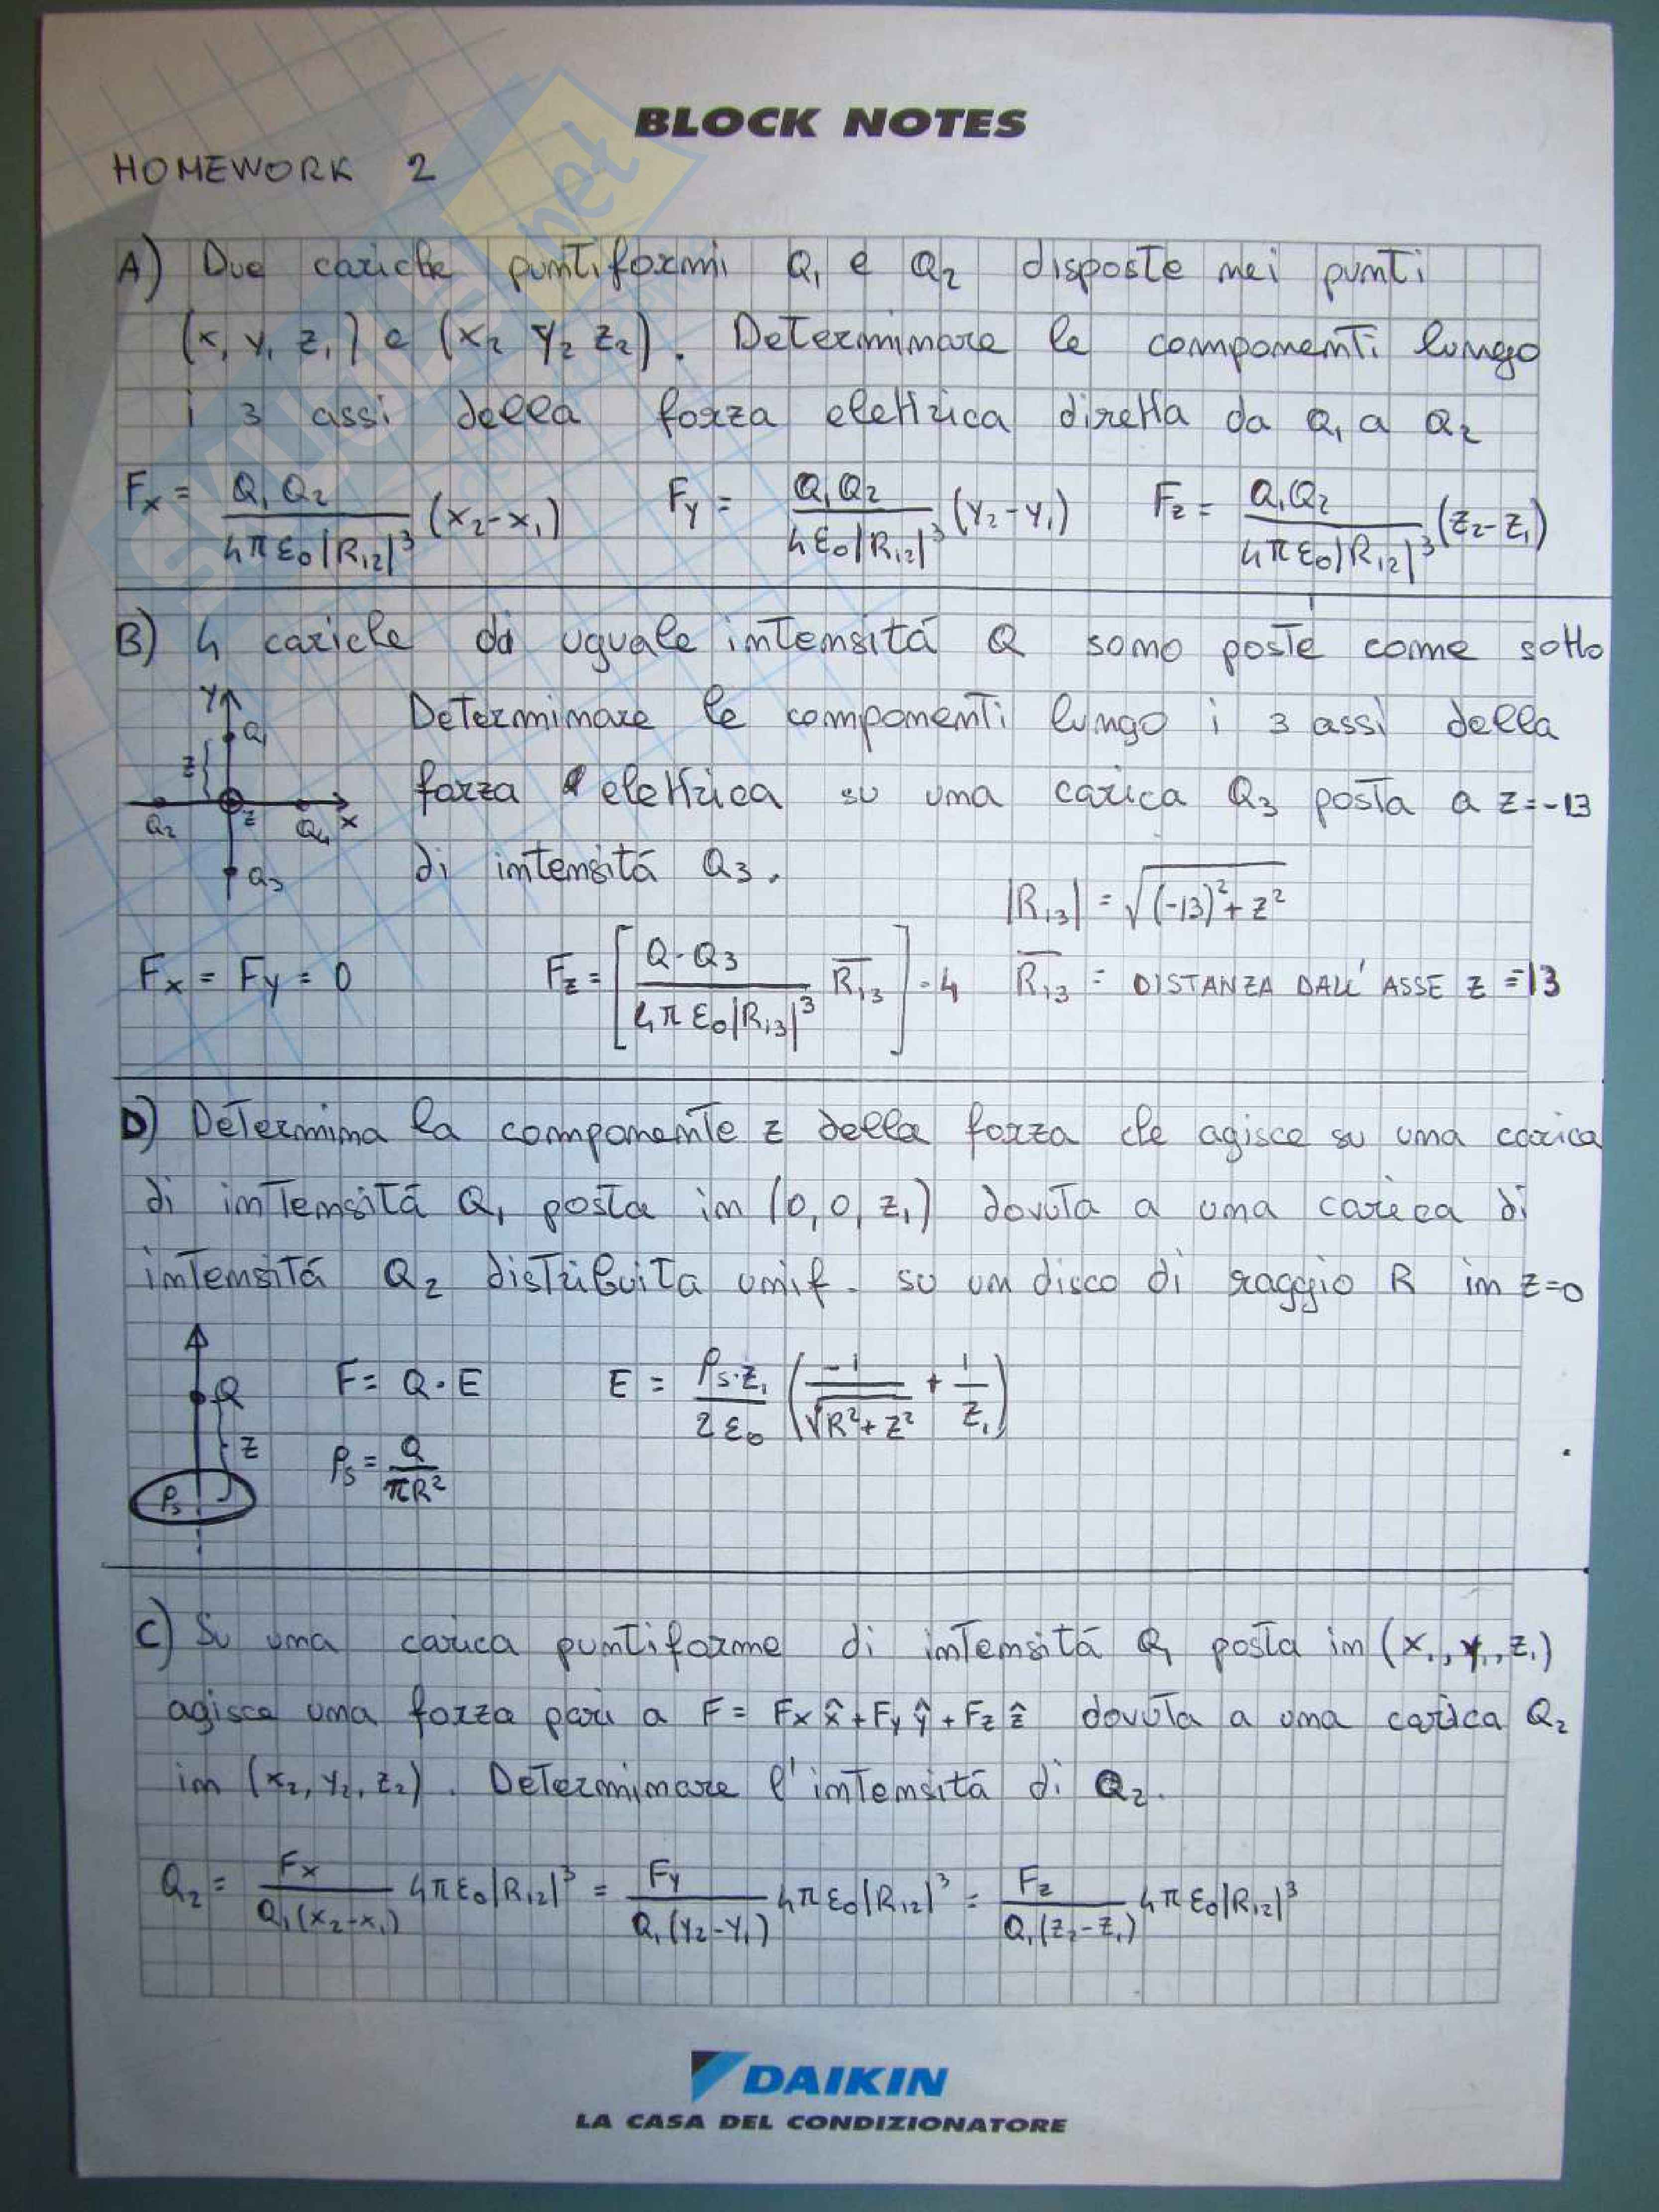 BLOCK NOTES
HOMEWORK 2
A) Due cariche puntiformi Q₁ e Q₂ disposte nei punti
(x₁ y₁ z₁) e (x₂ y₂ z₂). Determinare le componenti lungo
i 3 assi della forza elettrica diretta da Q₁ a Q₂
Fx = Q₁Q₂ / 4πε₀|R₁₂|³ (x₂-x₁) Fy = Q₁Q₂ / 4ε₀|R₁₂|³ (y₂-y₁) Fz = Q₁Q₂ / 4πε₀|R₁₂|³ (z₂-z₁)
B) 4 cariche di uguale intensitá Q sono poste come sotto
Y Q₁ z Q₂ z Q₄ x Q₃
Determinare le componenti lungo i 3 assi della
forza elettrica su una carica Q₃ posta a z=-13
di intensitá Q₃.
|R₁₃| = √((-13)²+z²)
Fx = Fy = 0 Fz = [Q·Q₃ / 4πε₀|R₁₃|³ R̅₁₃]·4 R̅₁₃ = DISTANZA DALL'ASSE z =13
D) Determina la componente z della forza che agisce su una carica
di intensitá Q₁ posta in (0,0,z₁) dovuta a una carica di
intensitá Q₂ distribuita unif. su un disco di raggio R in z=0
Q z ρs
F = Q·E E = ρs·z₁ / 2ε₀ (-1 / √(R²+z²) + 1 / z₁)
ρs = Q / πR²
C) Su una carica puntiforme di intensitá Q₁ posta in (x₁,y₁,z₁)
agisce una forza pari a F = Fx x̂ + Fy ŷ + Fz ẑ dovuta a una carica Q₂
in (x₂,y₂,z₂). Determinare l'intensitá di Q₂.
Q₂ = Fx / Q₁(x₂-x₁) 4πε₀|R₁₂|³ = Fy / Q₁(y₂-y₁) 4πε₀|R₁₂|³ = Fz / Q₁(z₂-z₁) 4πε₀|R₁₂|³
DAIKIN
LA CASA DEL CONDIZIONATORE